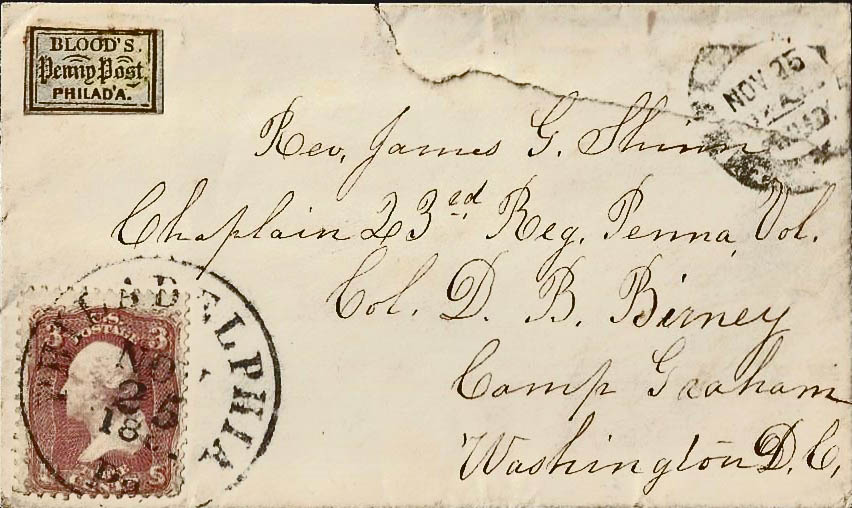 BLOOD'S
Penny Post
PHILAD'A.
NOV 25
Rev. James G. Shinn
Chaplain 23rd Reg. Penna Vol.
Col. D. B. Birney
Camp Graham
Washington D.C,
PHILADELPHIA
NOV
25
18
Pa
3 U.S. 3
POSTAGE